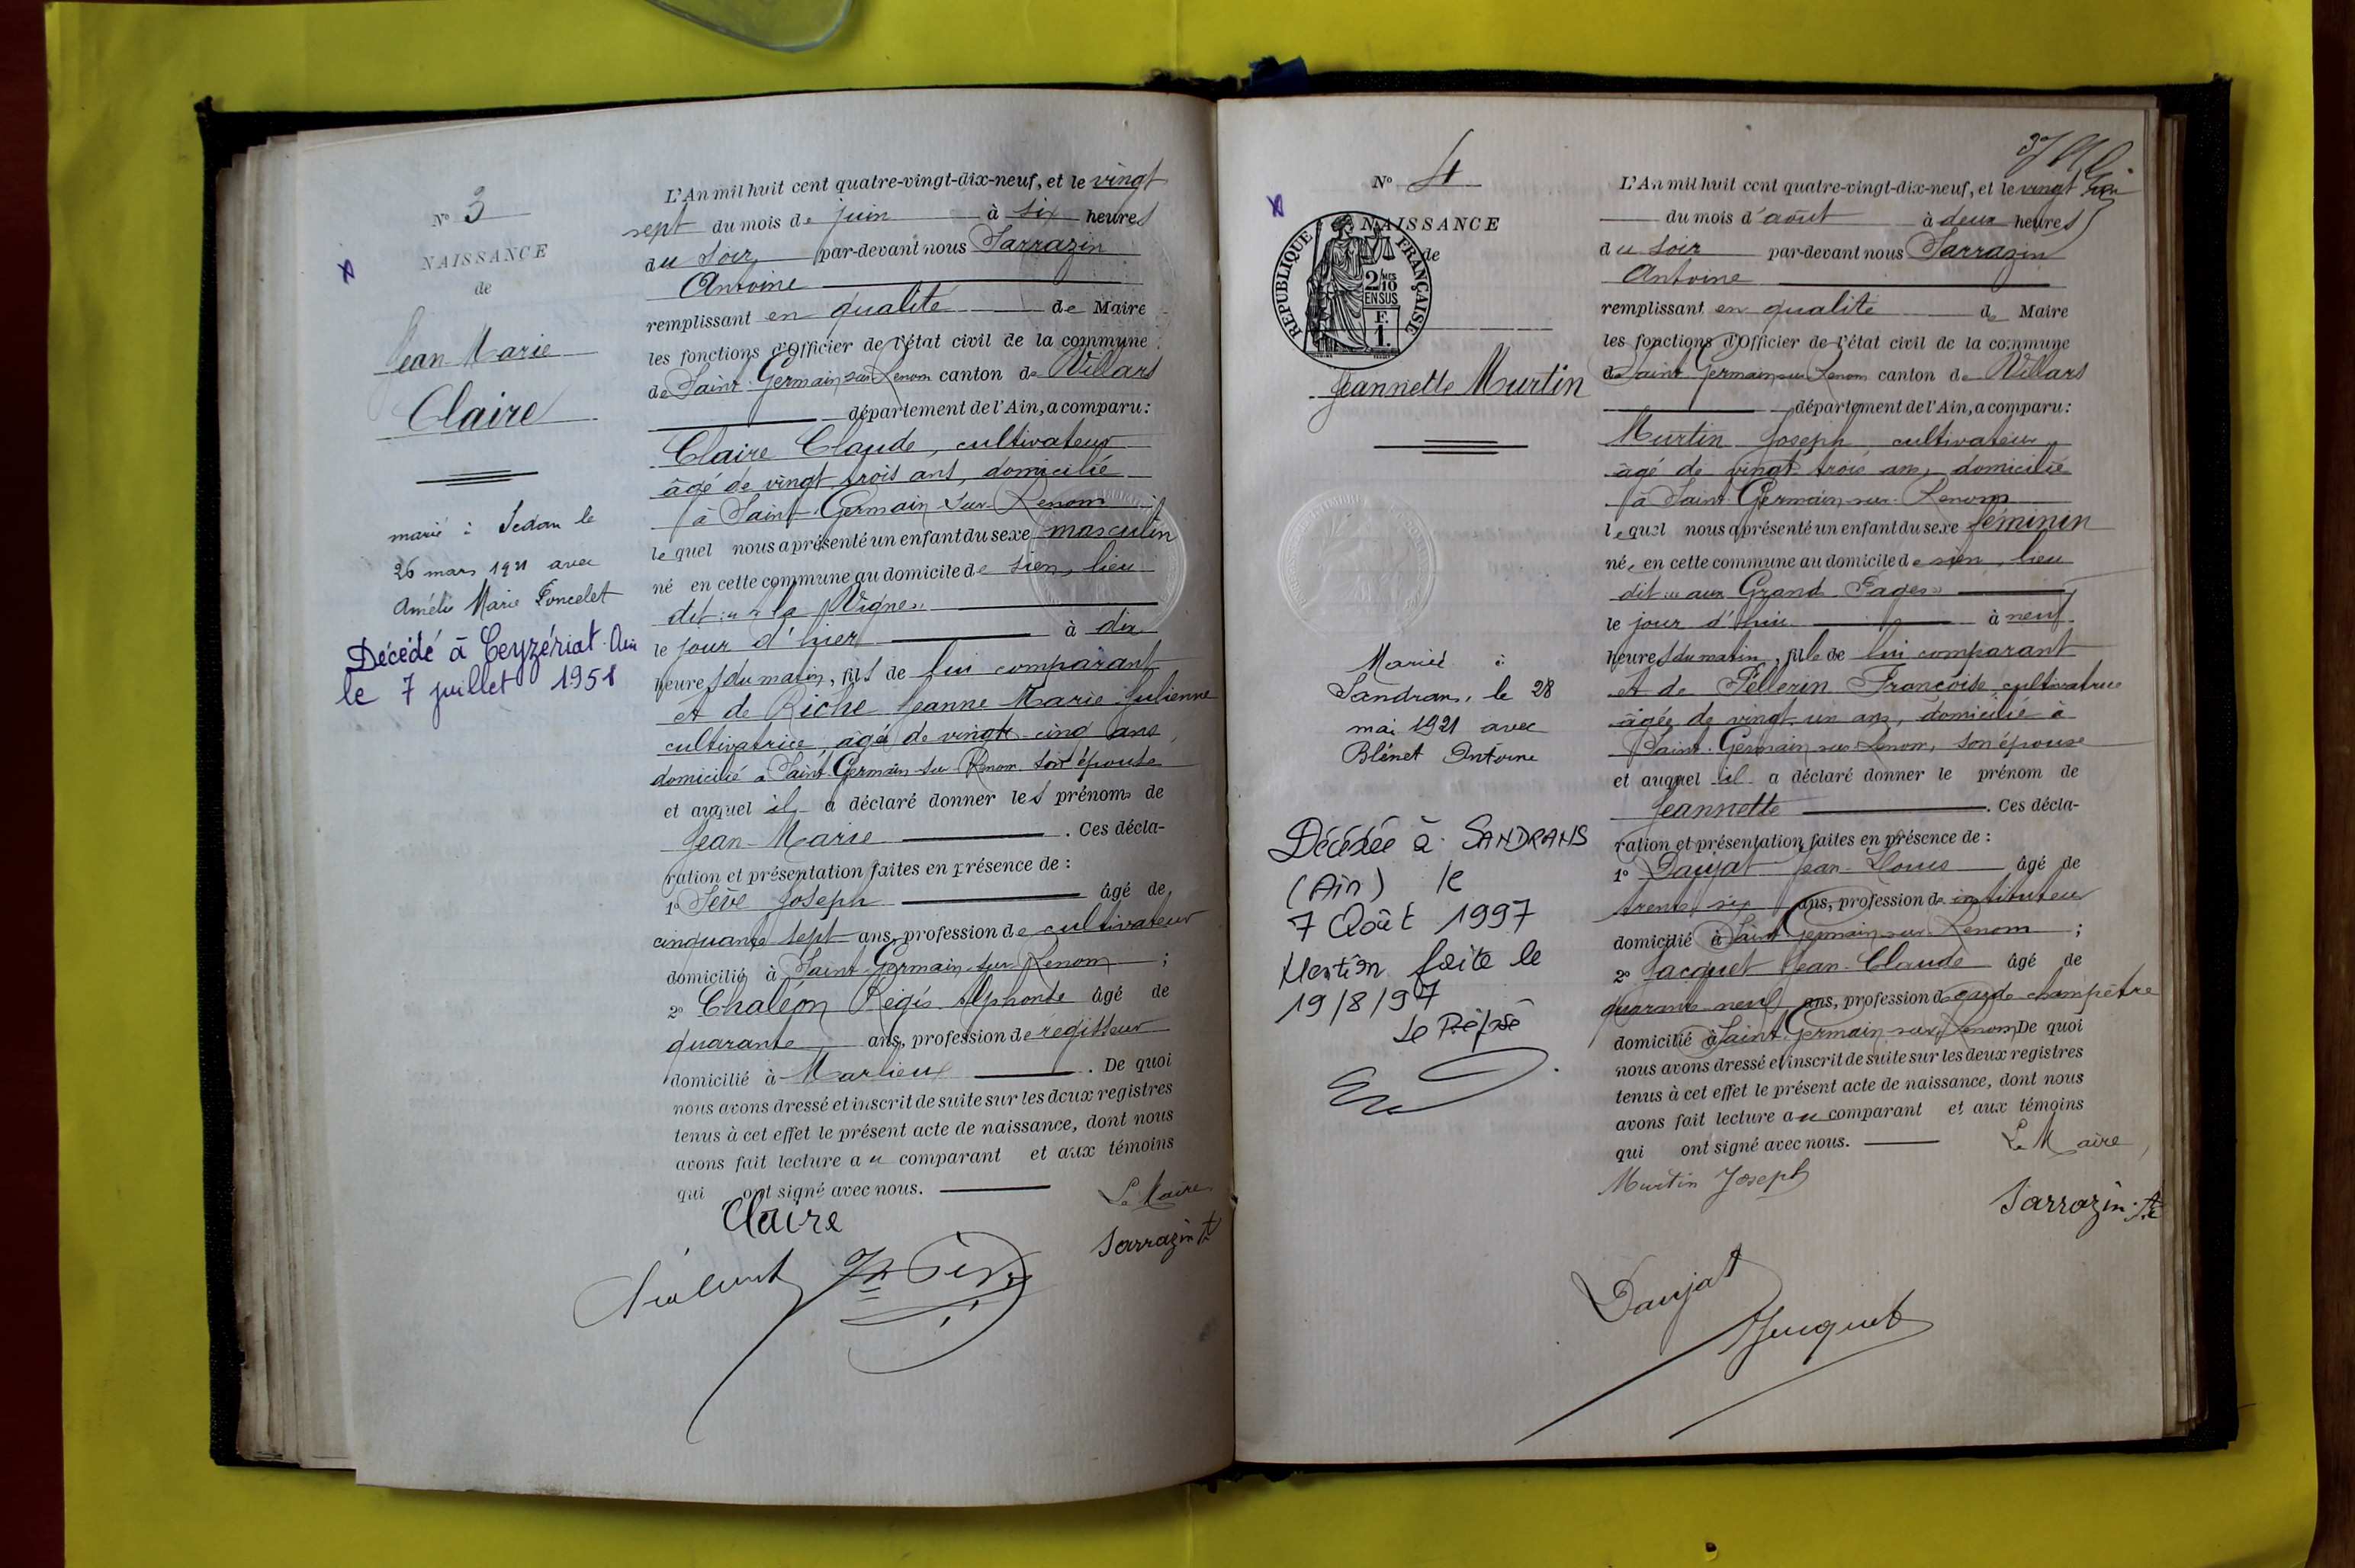 N° 3
NAISSANCE
de
Jean-Marie
Claire
marié à Sedan le
26 mars 1921 avec
Amélie Marie Poncelet
Décédé à Ceyzériat Ain
le 7 juillet 1958
L'An mil huit cent quatre-vingt-dix-neuf, et le vingt
sept du mois de juin à six heures
du soir par-devant nous Sarrazin
Antoine
remplissant en qualité de Maire
les fonctions d'Officier de l'état civil de la commune
de Saint-Germain sur Renom canton de Villars
département de l'Ain, a comparu :
Claire Claude, cultivateur
âgé de vingt trois ans, domicilié
à Saint-Germain-sur-Renom
lequel nous a présenté un enfant du sexe masculin
né en cette commune au domicile de sien, lieu
dit « à la Vigne »
le jour d'hier à dix
heures du matin, fils de lui comparant
et de Riche Jeanne Marie Julienne
cultivatrice, agé de vingt-cinq ans,
domicilié à Saint-Germain-sur-Renom son épouse
et auquel il a déclaré donner les prénoms de
Jean-Marie . Ces décla-
ration et présentation faites en présence de :
1° Sève Joseph âgé de
cinquante sept ans, profession de cultivateur
domicilié à Saint-Germain-sur-Renom ;
2° Chaléon Régis Alphonse âgé de
quarante ans, profession de régisseur
domicilié à Marlieux . De quoi
nous avons dressé et inscrit de suite sur les deux registres
tenus à cet effet le présent acte de naissance, dont nous
avons fait lecture au comparant et aux témoins
qui ont signé avec nous.
Le Maire
Claire
Sarrazin Ae
N° 4
NAISSANCE
de
RÉPUBLIQUE FRANÇAISE
2/10 MES
EN SUS
F.
1.
Jeannette Murtin
Mariée à
Sandrans, le 28
mai 1921 avec
Blénet Antoine
Décédée à SANDRANS
(Ain) le
7 Août 1997
Mention faite le
19/8/97
Le Préposé
37
L'An mil huit cent quatre-vingt-dix-neuf, et le vingt trois
du mois d'août à deux heures
du soir par-devant nous Sarrazin
Antoine
remplissant en qualité de Maire
les fonctions d'Officier de l'état civil de la commune
de Saint-Germain sur Renom canton de Villars
département de l'Ain, a comparu :
Murtin Joseph cultivateur,
âgé de vingt-trois ans, domicilié
à Saint-Germain-sur-Renom
lequel nous a présenté un enfant du sexe féminin
née en cette commune au domicile de sien, lieu
dit « aux Grand Fages »
le jour d'hui à neuf
heures du matin, fille de lui comparant
et de Pellerin Françoise, cultivatrice
âgée de vingt-un ans, domicilié à
Saint-Germain sur Renom, son épouse
et auquel il a déclaré donner le prénom de
Jeannette . Ces décla-
ration et présentation faites en présence de :
1° Daujat Jean-Louis âgé de
trente-six ans, profession de instituteur
domicilié à Saint-Germain-sur-Renom ;
2° Jacquet Jean-Claude âgé de
quarante-neuf ans, profession de garde champêtre
domicilié à Saint-Germain-sur-Renom De quoi
nous avons dressé et inscrit de suite sur les deux registres
tenus à cet effet le présent acte de naissance, dont nous
avons fait lecture au comparant et aux témoins
qui ont signé avec nous. Le Maire,
Murtin Joseph
Sarrazin Ae
Daujat
Jacquet